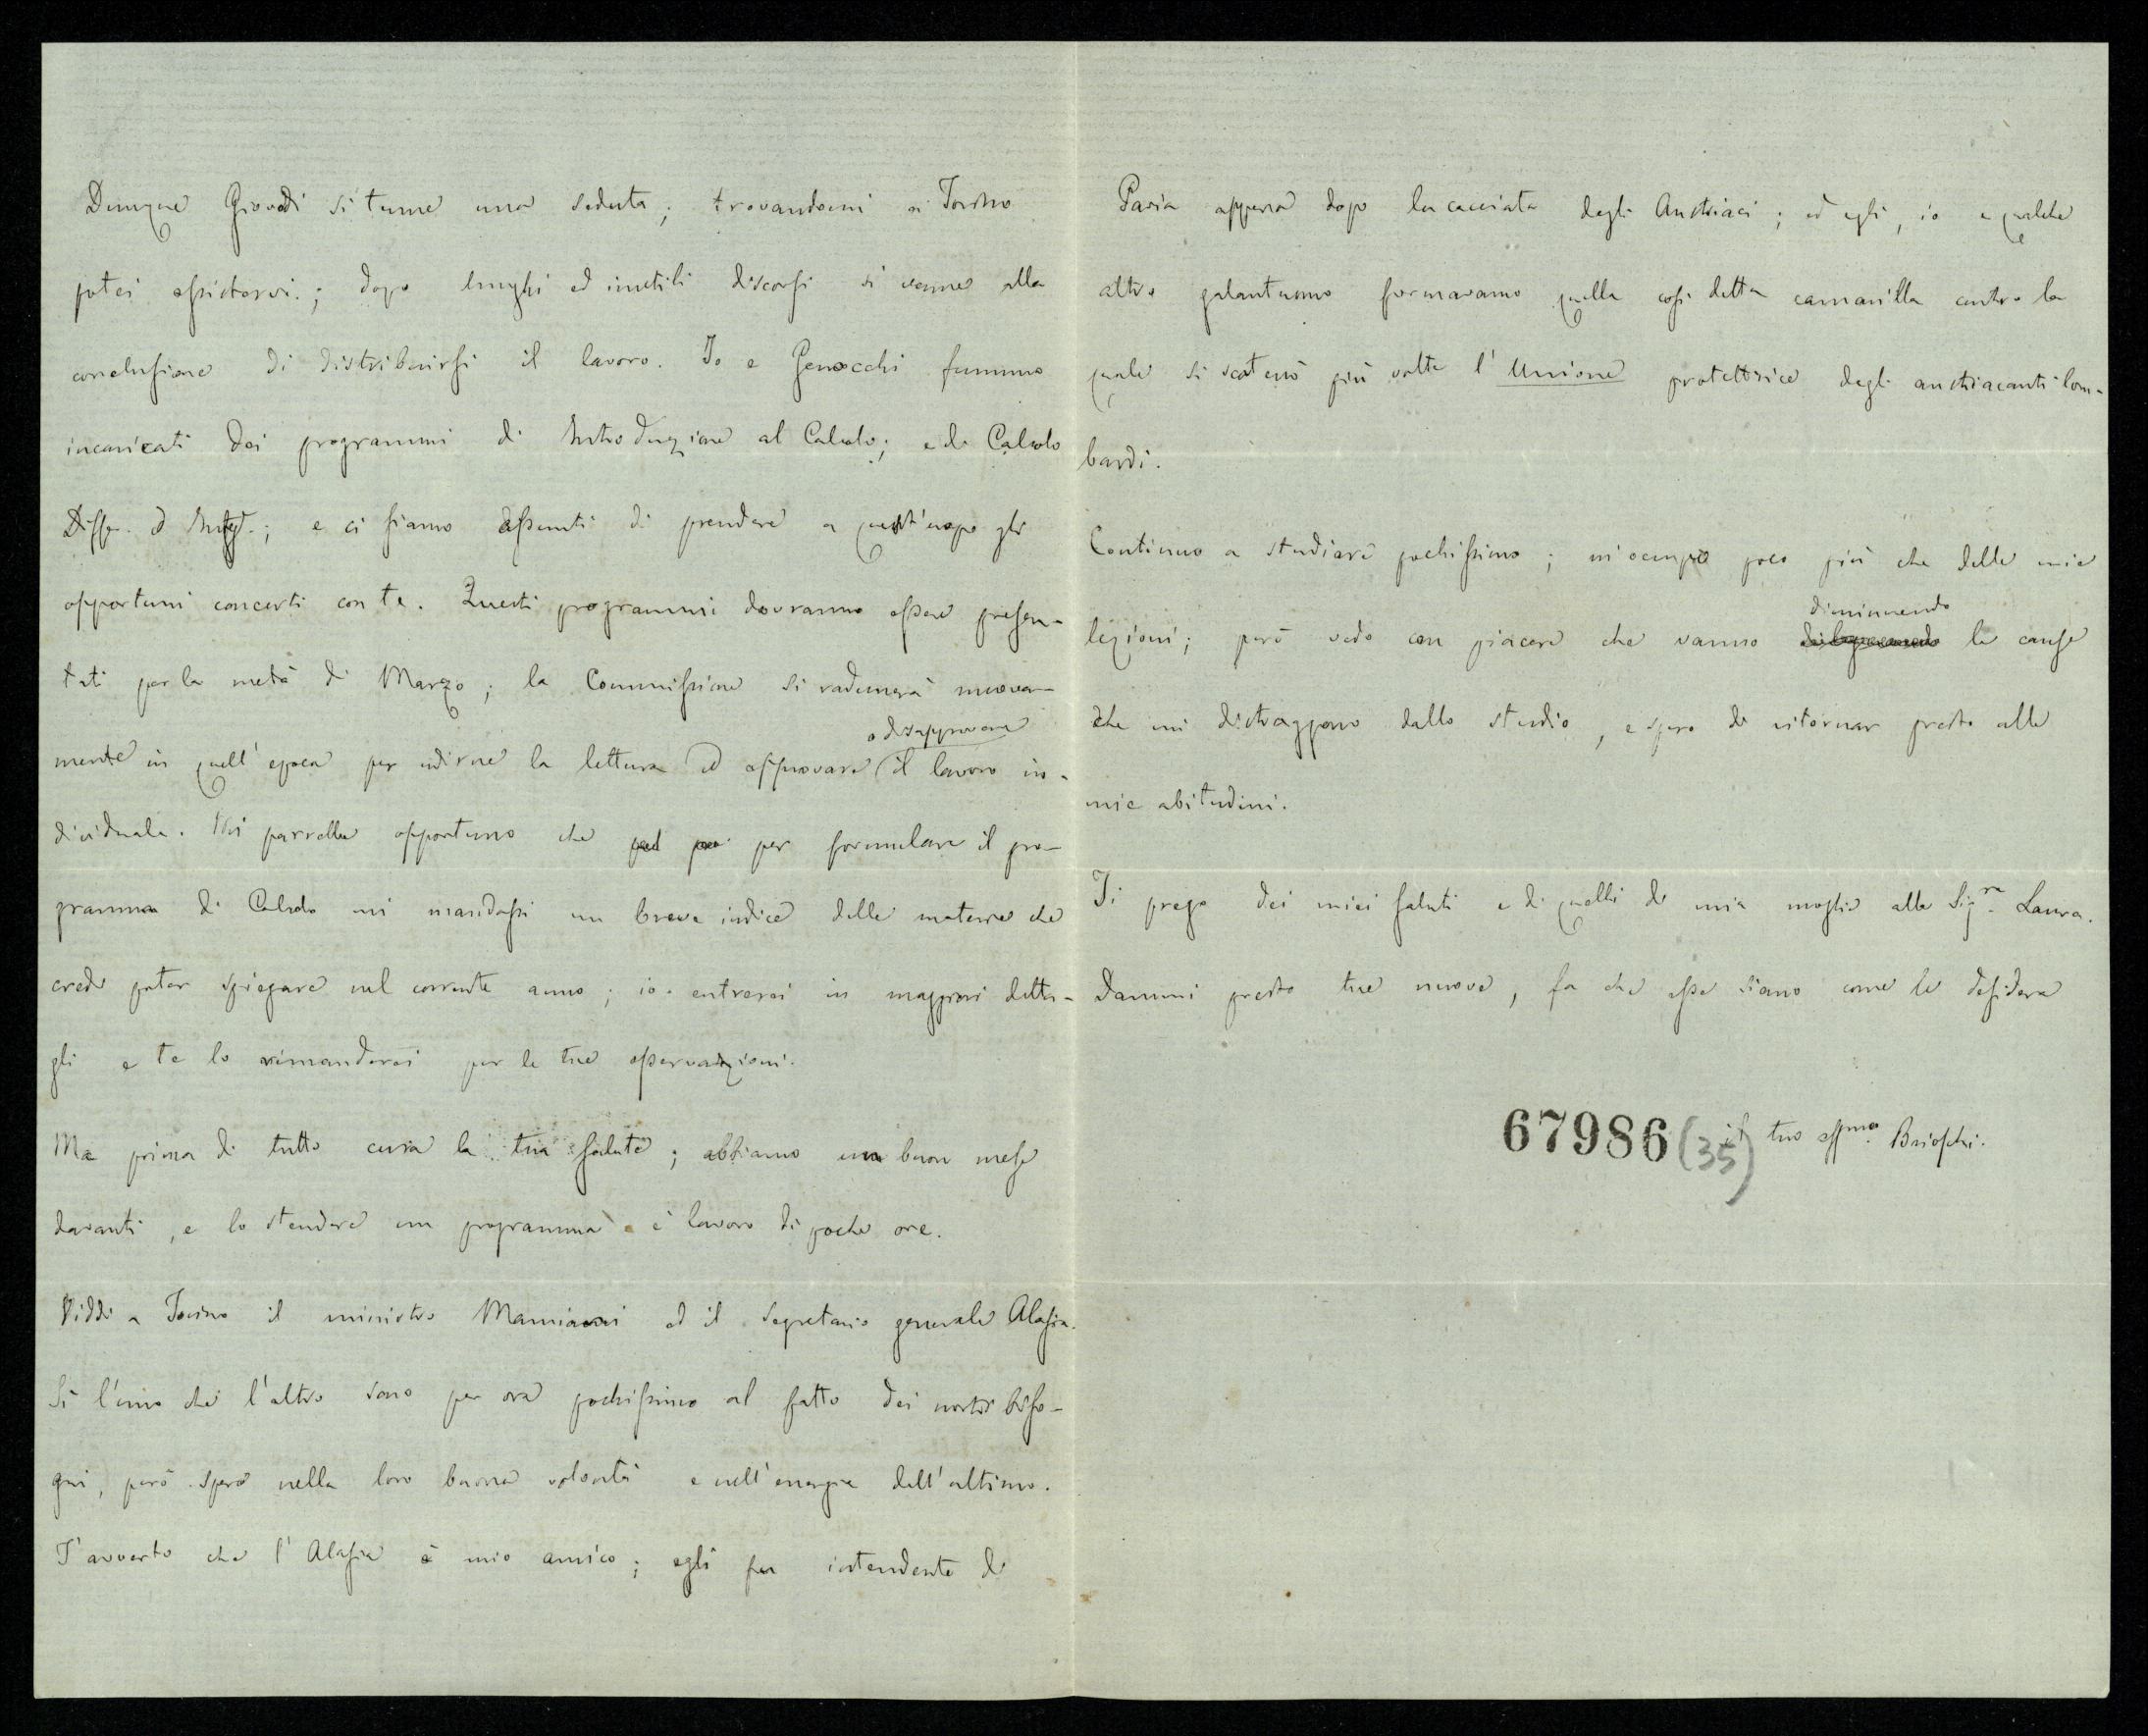 Dunque Giovedi si tenne una seduta; trovandomi a Torino
potei assistervi; dopo lunghi ed inutili discorsi si venne alla
conclusione di distribuirsi il lavoro. Io e Genocchi fummo
incaricati dei programmi di Introduzione al Calcolo; e di Calcolo
Diff. ed Integ.; e ci siamo assunti di prendere a quest'uopo gli
opportuni concerti con te. Questi programmi dovranno essere presen-
tati per la metà di Marzo; la Commissione si radunerà nuova-
mente in quell'epoca per udirne la lettura ed approvare o disapprovare il lavoro in-
dividuale. Mi parrebbe opportuno che per formulare il pro-
gramma di Calcolo mi mandassi un breve indice delle materie che
credi poter spiegare nel corrente anno; io entrerei in maggiori detta-
gli e te lo rimanderei per le tue osservazioni.
Ma prima di tutto cura la tua salute; abbiamo un buon mese
davanti, e lo stendere un programma è lavoro di poche ore.
Viddi a Torino il ministro Mamiani ed il Segretario generale Alasia.
Sì l'uno che l'altro sono per ora pochissimo al fatto dei nostri biso-
gni, però spero nella loro buona volontà e nell'energia dell'ultimo.
T'avverto che l'Alasia è mio amico; egli fu intendente di
Pavia appena dopo la cacciata degli Austriaci; ed egli, io e qualche
altro galantuomo formavamo quella così detta camarilla contro la
quale si scatenò più volte l'Unione protettrice degli austriacanti lom-
bardi.
Continuo a studiare pochissimo; m'occupo poco più che delle mie
lezioni; però vedo con piacere che vanno diminuendo le cause
che mi distraggono dallo studio, e spero di ritornar presto alle
mie abitudini.
Ti prego dei miei saluti e di quelli di mia moglie alla Sig.ra Laura.
Dammi presto tue nuove, fa che esse siano come le desidera
il tuo aff.mo Brioschi.
67986 (35)